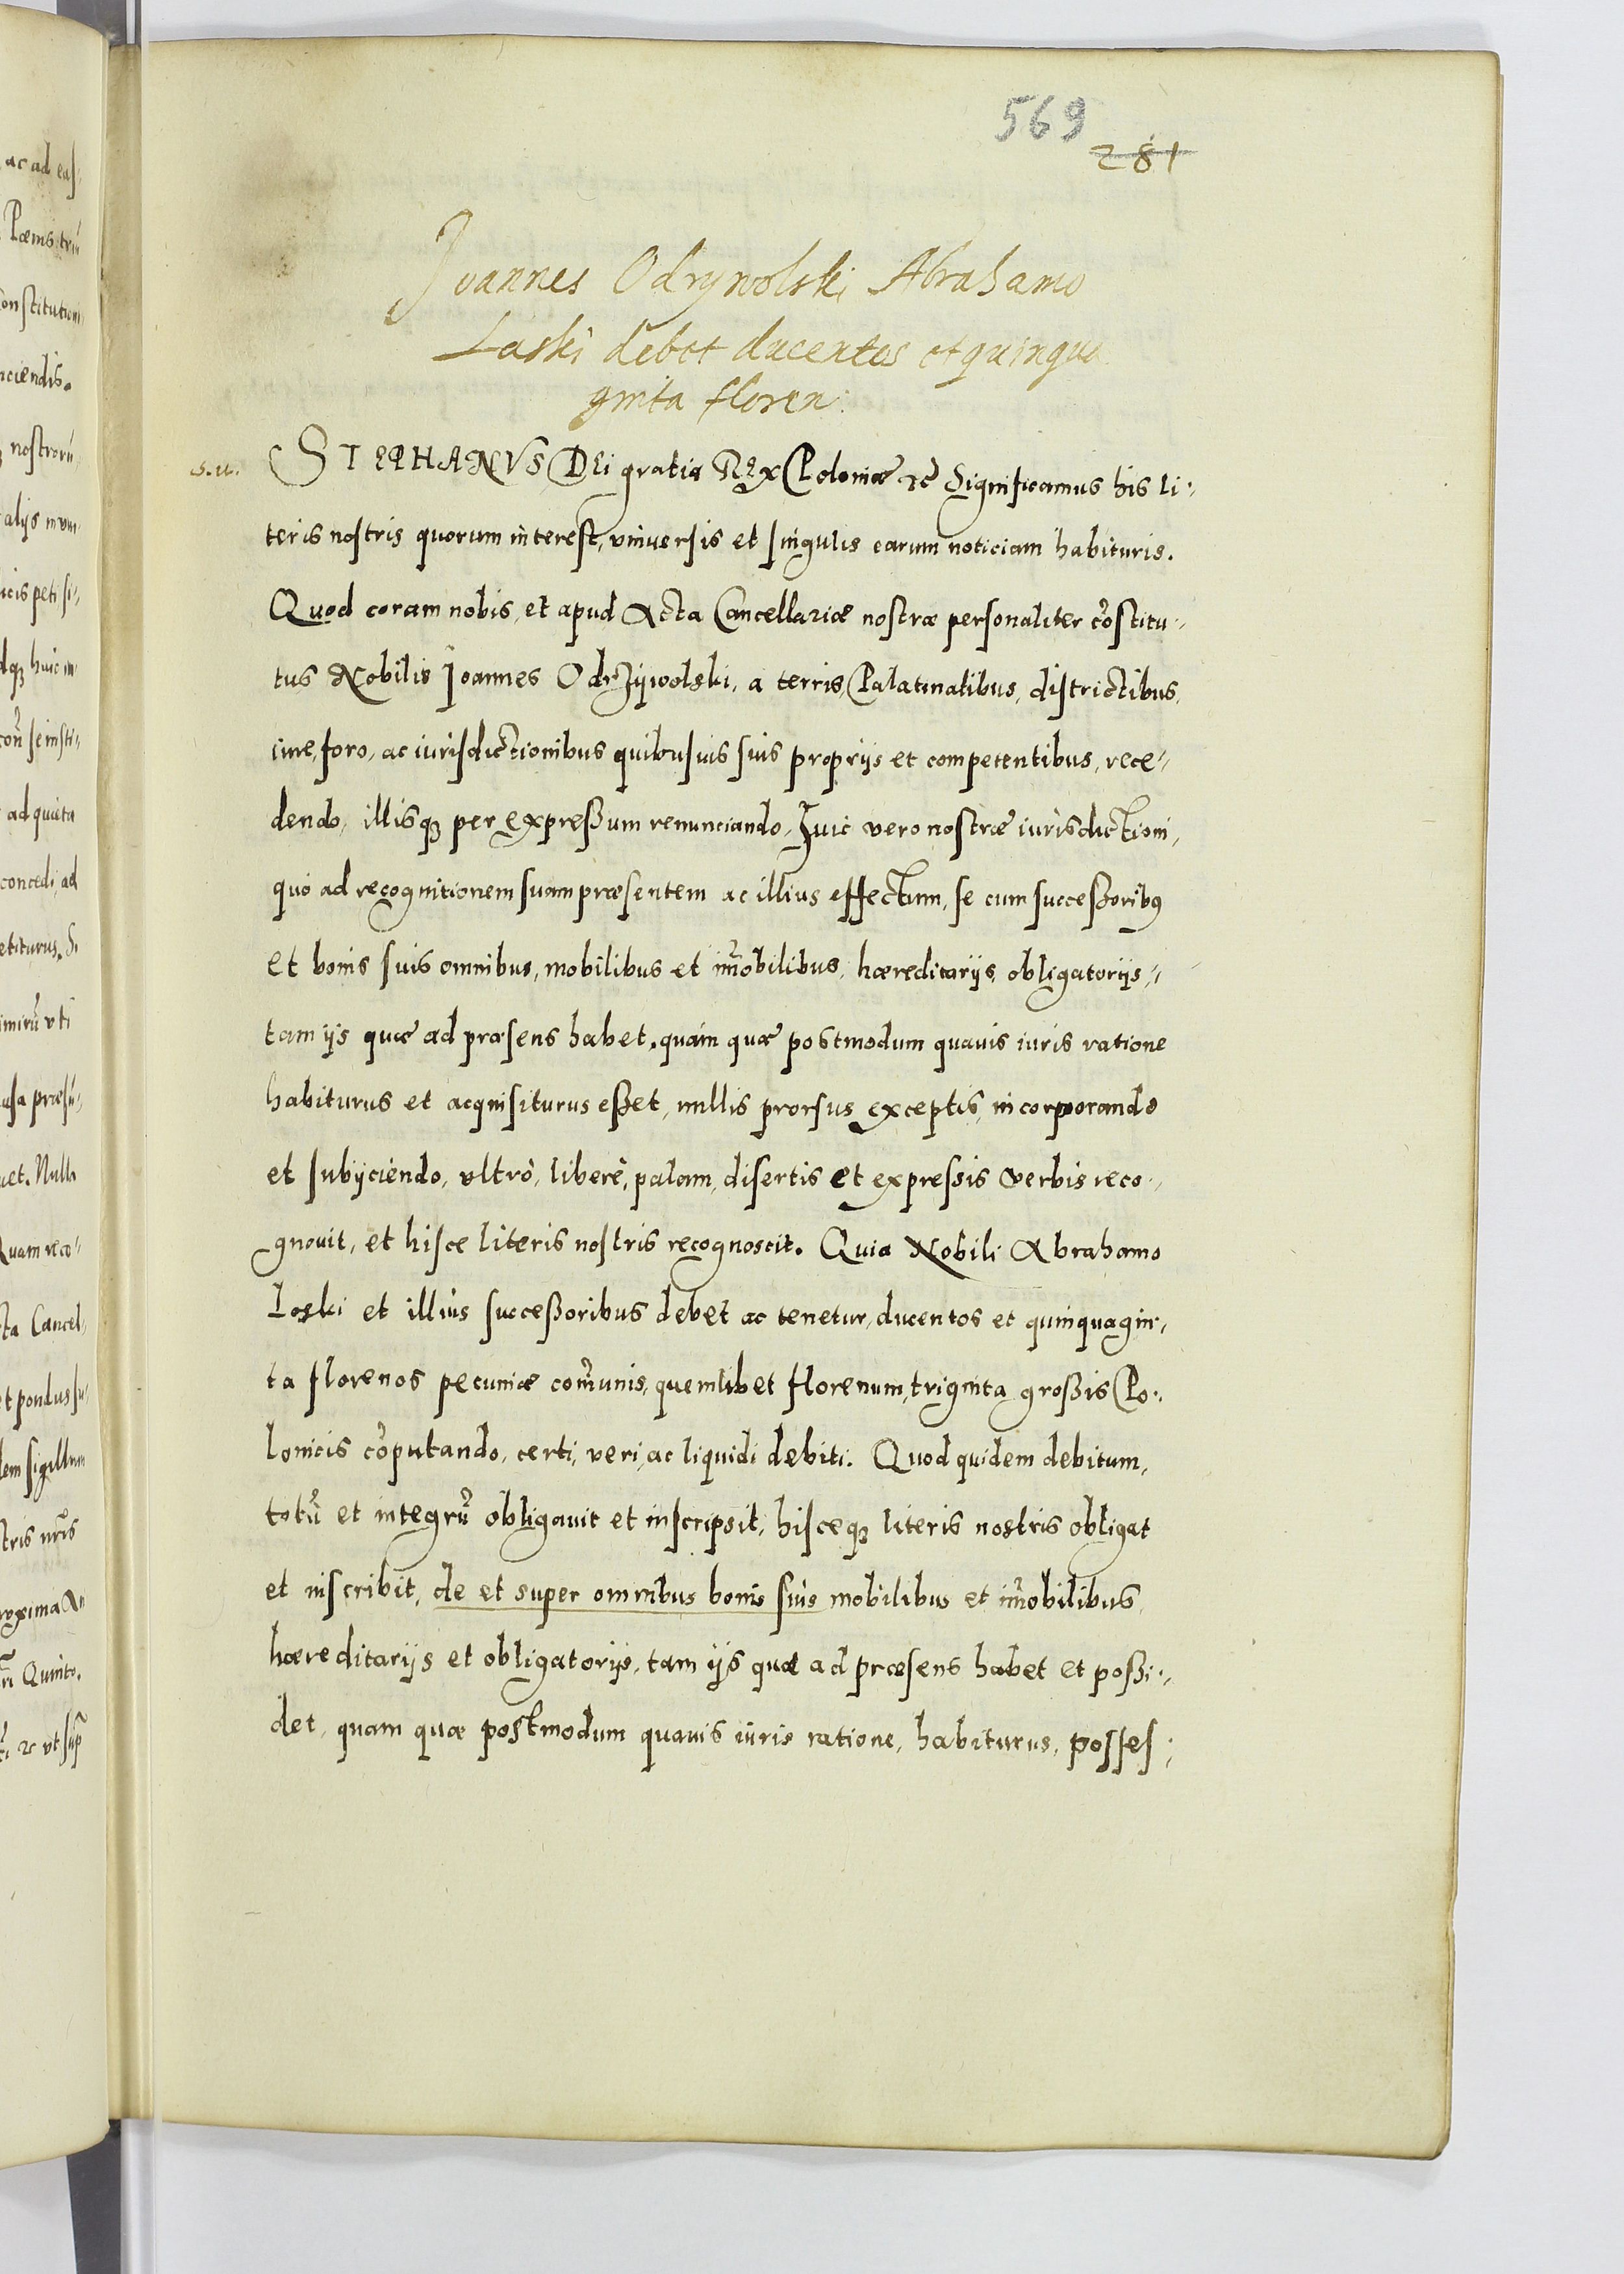 569
281
Joannes Odrywolski Abrahamo
Laski debet ducentos et quinqua
ginta floren:
S. u.
STEPHANVS DEi gratia REx Poloniæ &c̃ Significamus his li:
teris nostris quorum interest, vniuersis et singulis earum noticiam habituris.
Quod coram nobis, et apud Acta Cancellariæ nostræ personaliter cõstitu:
tus Nobilis Joannes Odrziwolski, a terris, Palatinatibus, districtibus,
iure, foro, ac iurisdictionibus quibusuis suis proprijs et competentibus, rece:
dendo, illisq3 per expreßum renunciando, Huic vero nostræ iurisdictioni,
quò ad recognitionem suam præsentem ac illius effectum, se cum succeßoribus
et bonis suis omnibus, mobilibus et im̃obilibus, hæreditarijs, obligatorijs,
tam ijs quæ ad præsens habet, quàm quæ postmodum quauis iuris ratione
habiturus et acquisiturus eßet, nullis prorsus exceptis, incorporando
et subijciendo, vltrò, liberè, palam, disertis et expressis verbis reco:
gnouit, et hisce literis nostris recognoscit. Quia Nobili Abrahamo
Loski et illius succeßoribus debet ac tenetur, ducentos et quinquagin:
ta florenos pecuniæ com̃unis, quemlibet florenum, triginta großis Po:
lonicis cõputando, certi, veri, ac liquidi debiti. Quod quidem debitum,
totũ et integrũ obligauit et inscripsit, hisceq3 literis nostris obligat
et inscribit, de et super omnibus bonis suis mobilibus et im̃obilibus,
hæreditarijs et obligatorijs, tam ijs quæ ad præsens habet et poßi:
det, quam quæ postmodum quauis iuris ratione, habiturus, posses: